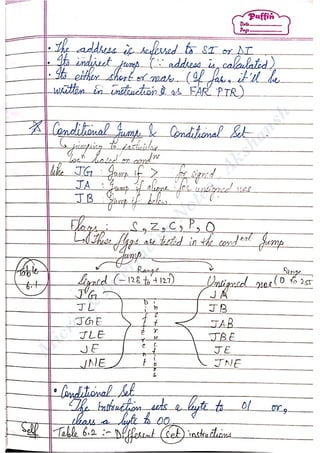 Puffin
Date
Page
• The address is referred to SI or DI
• Its indirect jump (∵ address is calculated)
• Its either short or near. (If far, it'll be
written in instruction as FAR PTR)
Conditional Jump & Conditional Set.
↳ jumping to particular
locn based on condn
like JG : Jump if > for signed
JA : Jump if above for unsigned nos
JB : Jump if below
Flags : S, Z, C, P, O
↳ These flags are tested in the condnal Jump
Jump
Table 6.1
Range
Signed (-128 to +127)
Unsigned nos (0 to 255
Range
JG JA
JL JB
JGE JAB
JLE JBE
JE JE
JNE JNE
• Conditional Set
The instruction sets a byte to 01 or,
clears a byte to 00
Self Table 6.2 :- Different (Set) instructions